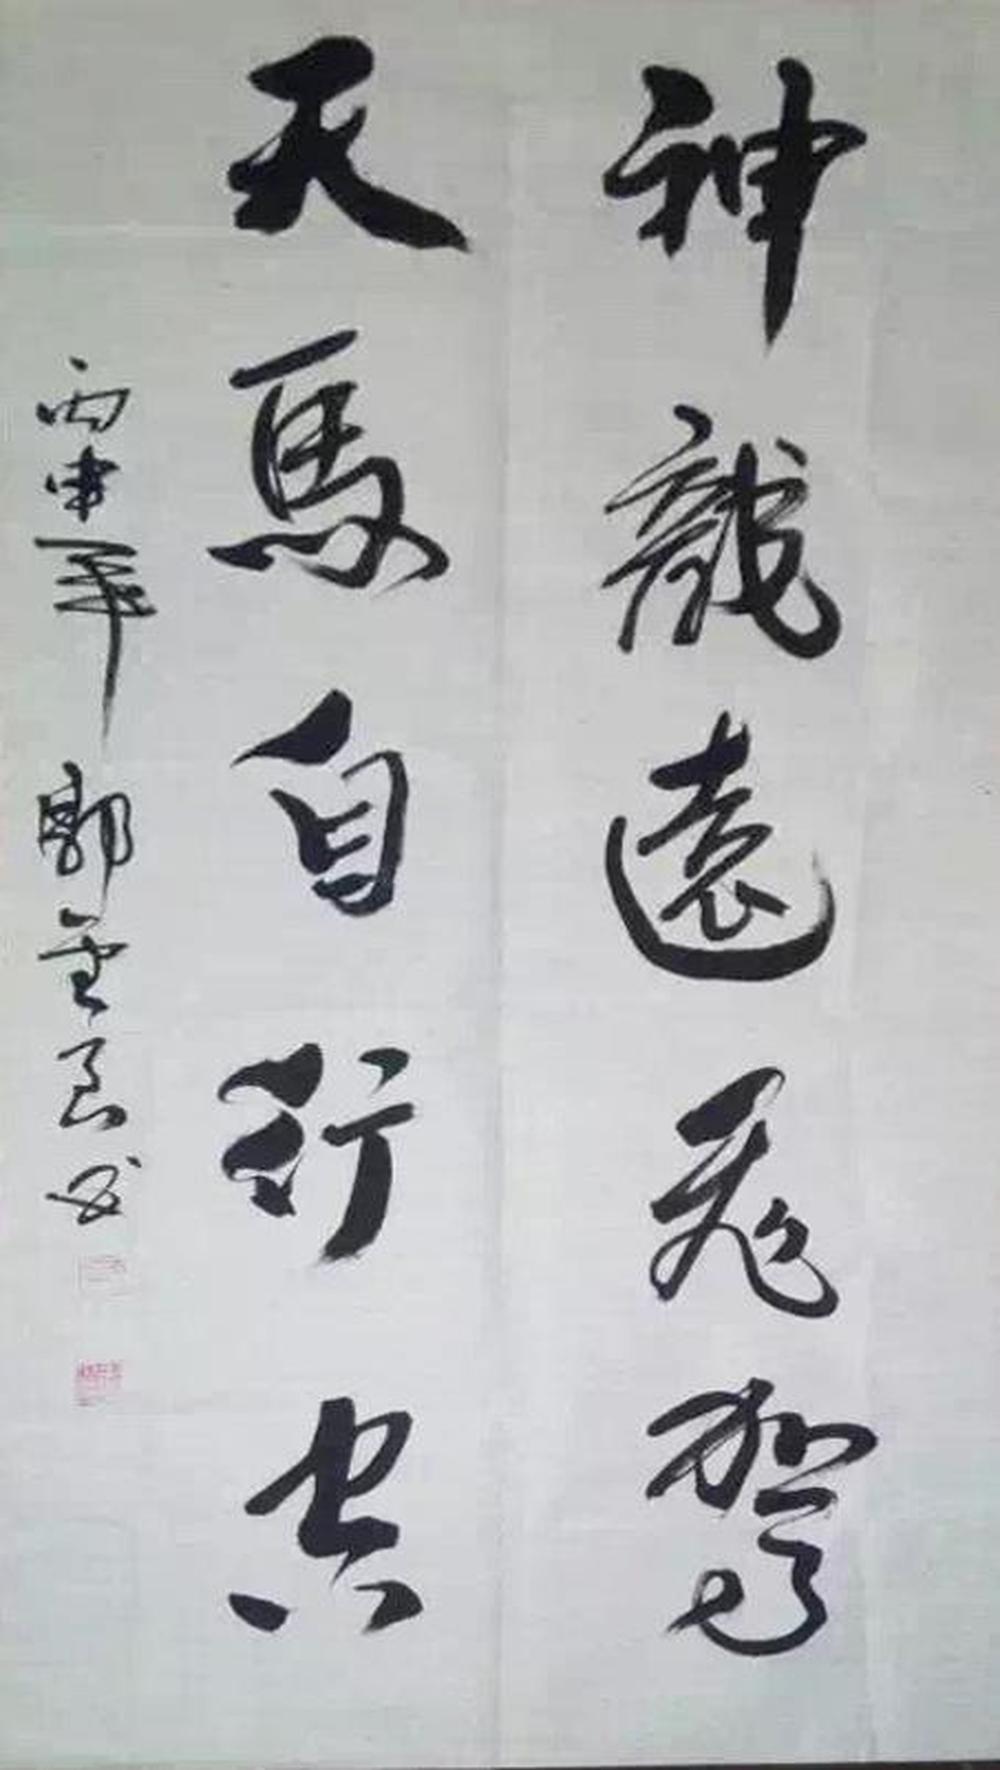 神龍遠飛駕
天馬自行空
丙申年 郭 良书